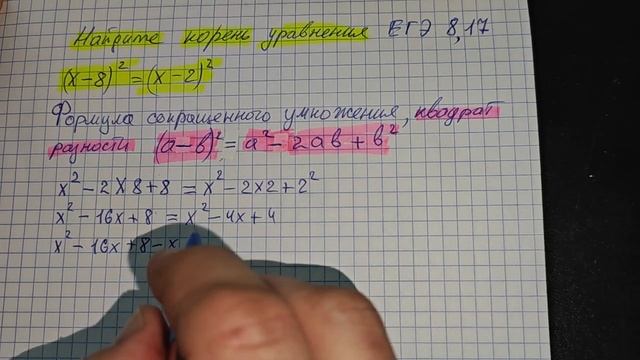 Найдите корень уравнения ЕГЭ 8,17
(x-8)² = (x-2)²
Формула сокращенного умножения, квадрат
разности (a-b)² = a² - 2ab + b²
x² - 2x8 + 8 = x² - 2x2 + 2²
x² - 16x + 8 = x² - 4x + 4
x² - 16x + 8 - x